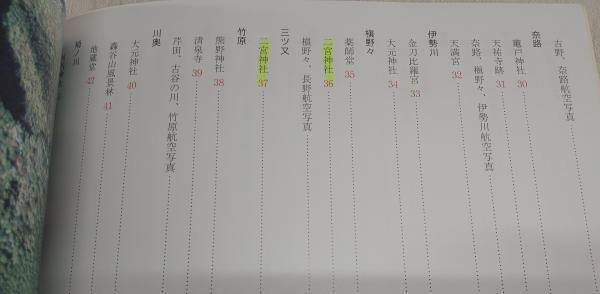 吉野、奈路航空写真
奈路
竈戸神社 30
天祐寺跡 31
奈路、槇野々、伊勢川航空写真
天満宮 32
伊勢川
金刀比羅宮 33
大元神社 34
槇野々
薬師堂 35
二宮神社 36
槇野々、長野航空写真
三ツ又
二宮神社 37
竹原
熊野神社 38
清泉寺 39
芹田、古谷の川、竹原航空写真
川奥
大元神社 40
轟谷山風景林 41
地蔵堂 42